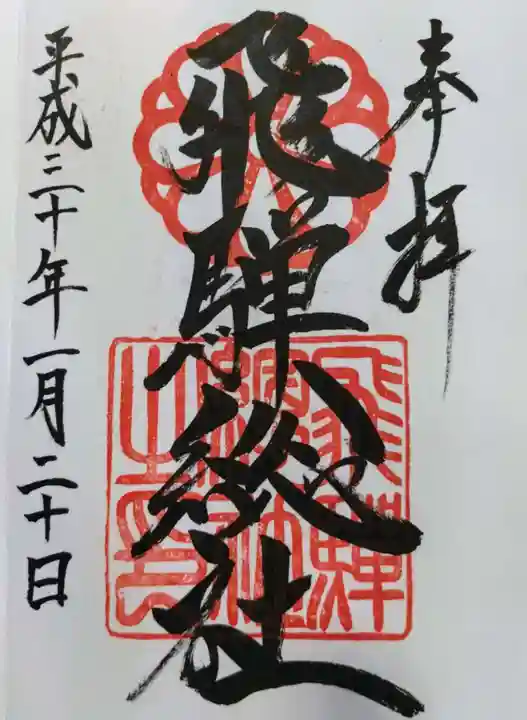 奉拝
飛騨総社
飛騨
総社
之印
平成三十年一月二十日